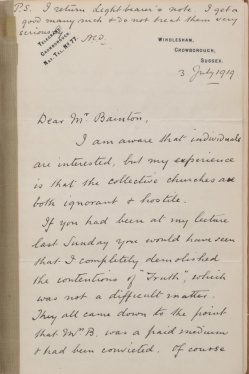 P.S. I return Lightbearer's note. I get a
good many such & do not treat them very
seriously. A.C.D.
TELEGRAMS,
CROWBOROUGH.
NAT. TEL. Nº 77.
WINDLESHAM,
CROWBOROUGH,
SUSSEX.
3 July 1919.
Dear Mr Bainton,
I am aware that individuals
are interested, but my experience
is that the collective churches are
both ignorant & hostile.
If you had been at my lecture
last Sunday you would have seen
that I completely demolished
the contentions of "Truth", which
was not a difficult matter.
They all came down to the point
that Mrs B. was a paid medium
& had been convicted. Of course